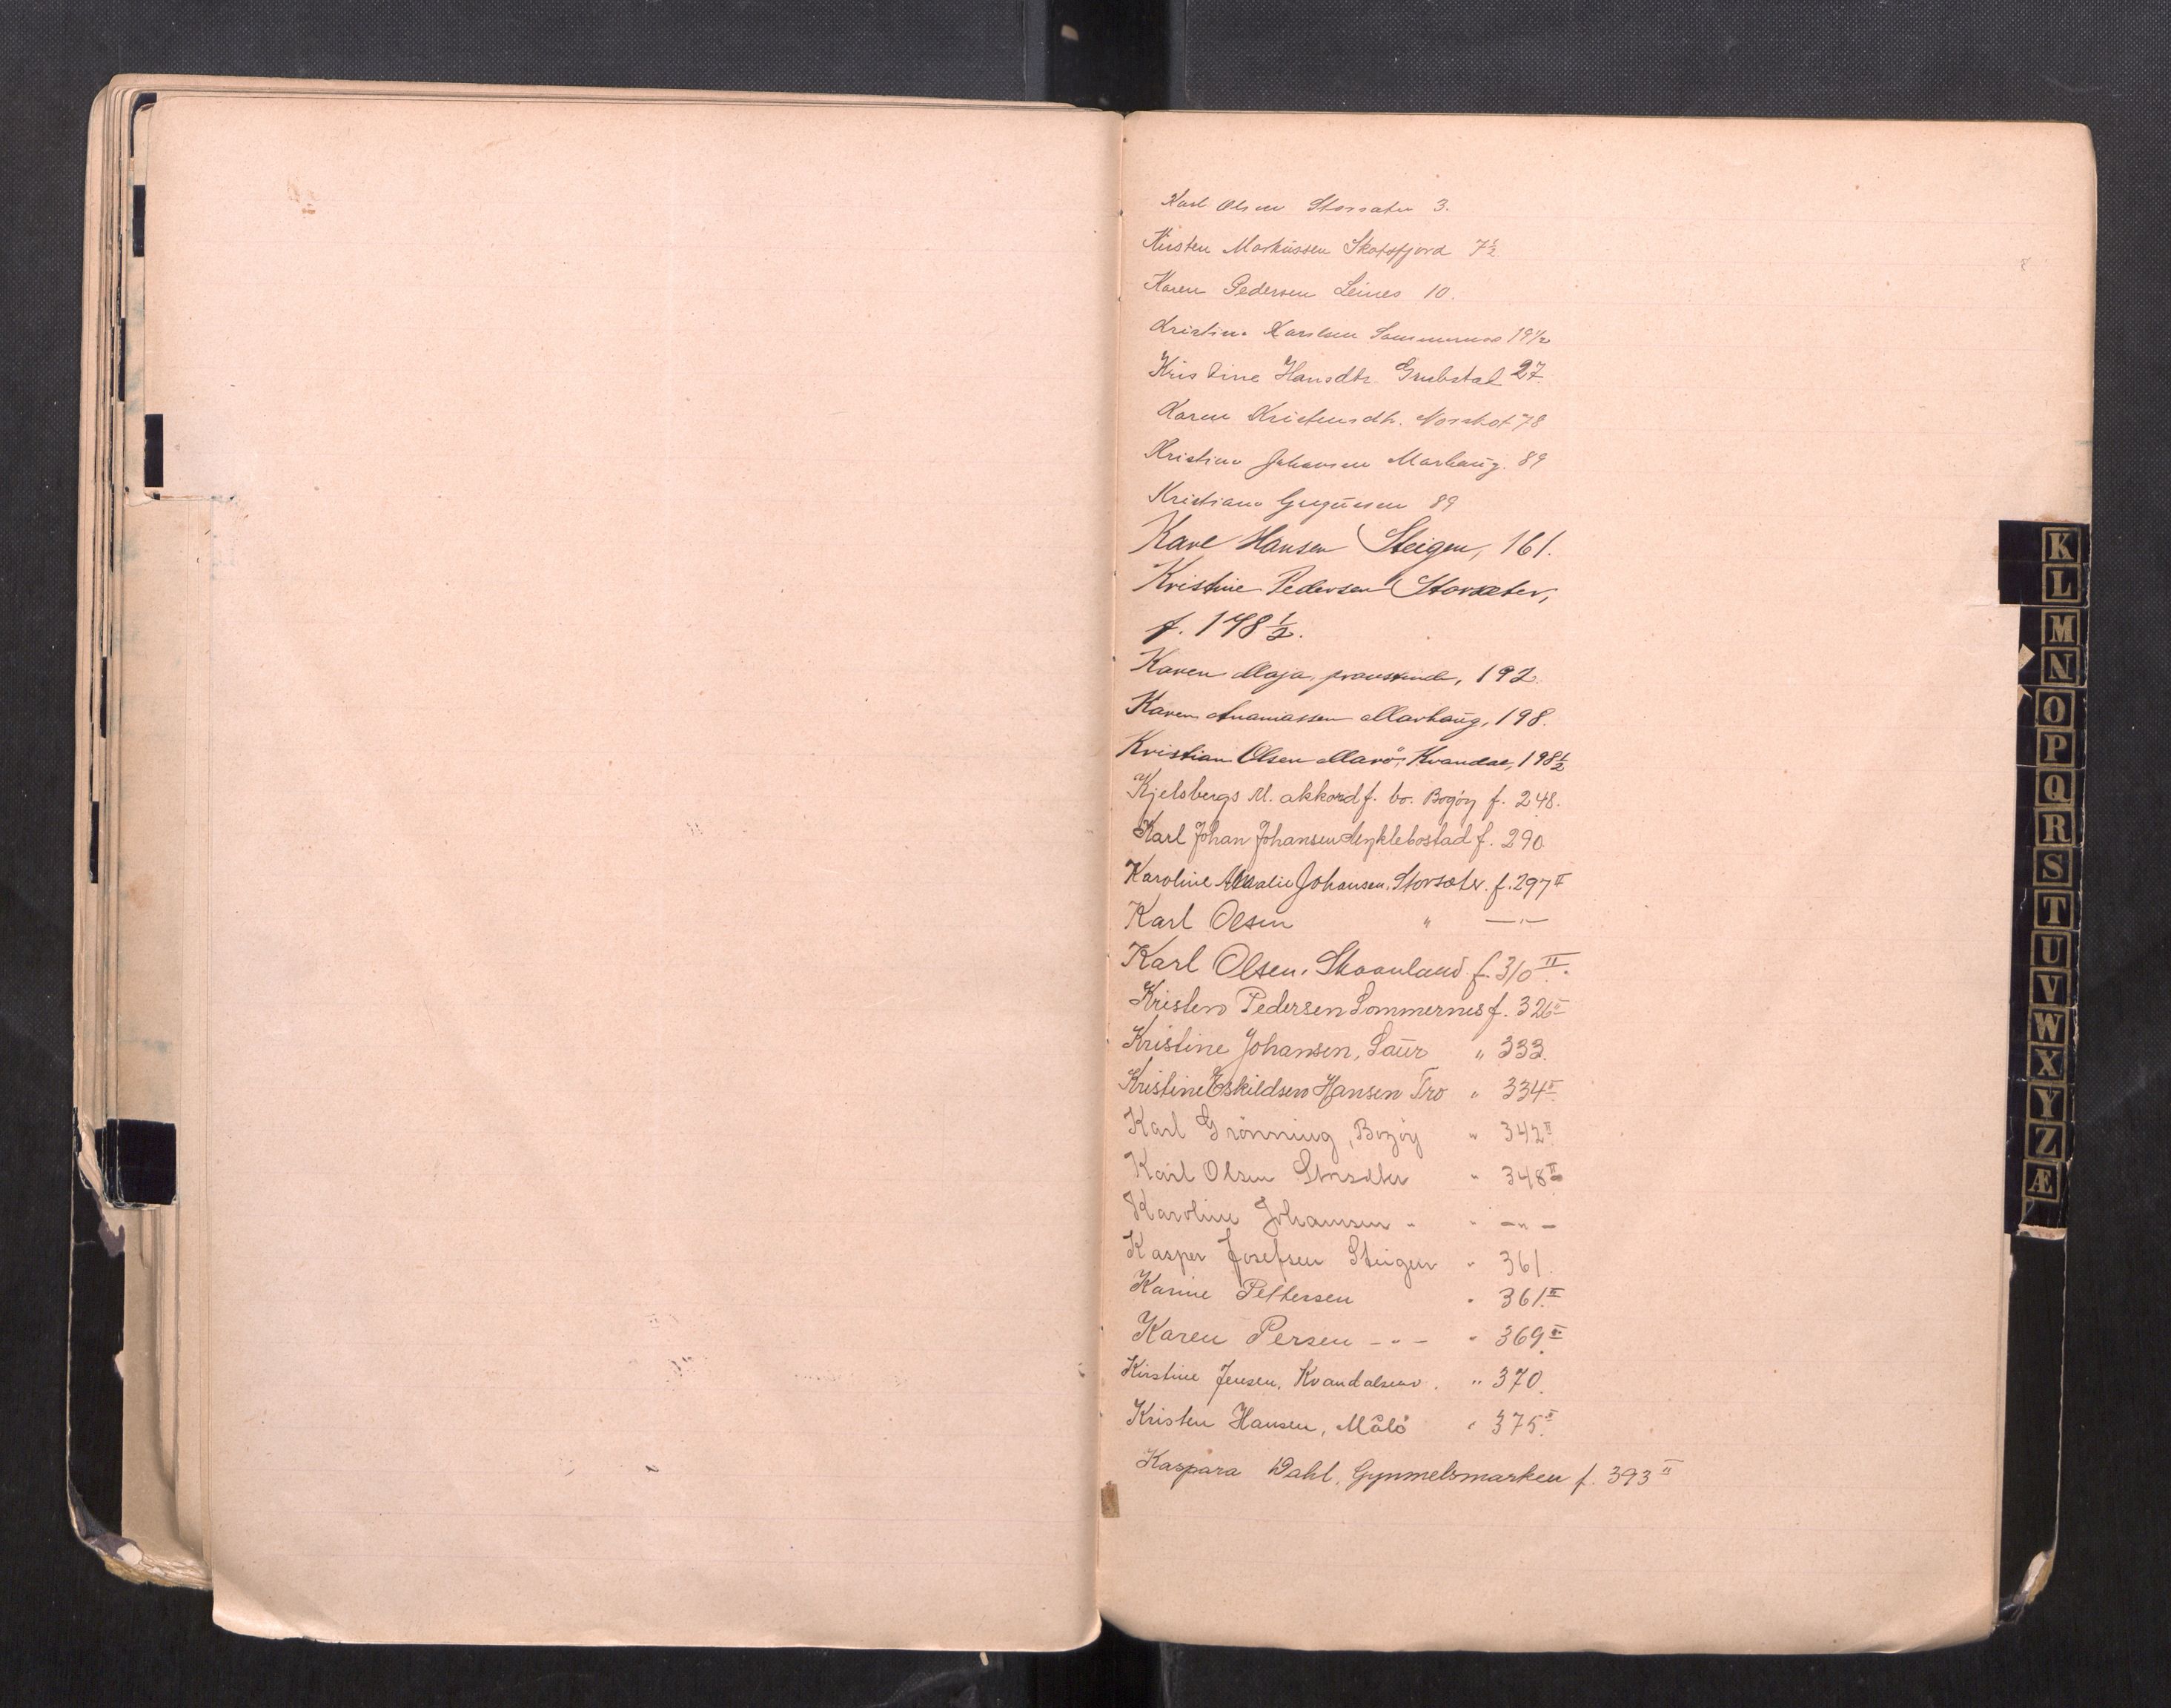 Karl Olsen Storsæter 3.
Kirsten Markussen Skotsfjord 7½
Karen Pedersen Leines 10.
Kristine Karlsen Sommernes 19½
Kristine Hansdtr. Grubstad 27
Karen Kristensdtr. Norskot 78
Kristine Johansen Marhaug. 89
Kristiane 89
Karl Hansen Steigen, 161.
Kristine Pedersen Storsæter,
f. 178½.
Karen Maja, 192.
Karen Ananiassen Marhaug, 198.
Kristian Olsen Marö, Kvandal, 198½
Kjelsbergs M. akkordf. bo. Bogöy f. 248.
Karl Johan Johansen Myklebostad f. 290
Karoline Johansen, Storsæter. f. 297 II
Karl Olsen " —"—
Karl Olsen, Skaanland f. 310 II.
Kristen Pedersen Sommernes f. 326 II
Kristine Johansen, Laur " 333.
Kristine Eskildsen Hansen Tro " 334 II
Karl Grönning, Bogöy " 342 II
Karl Olsen Storsæter " 348 II
Karoline Johansen " " —"—
Kasper Josefsen Steigen " 361
Karine Pettersen " 361 II
Karen Persen —"— " 369 II
Kirstine Jensen, Kvandalsenv. " 370.
Kristen Hansen, Målö " 375 II
Kaspara Dahl, Gymmelsmarken f. 393 II
K
L
M
N
O
P
Q
R
S
T
U
V
W
X
Y
Z
Æ